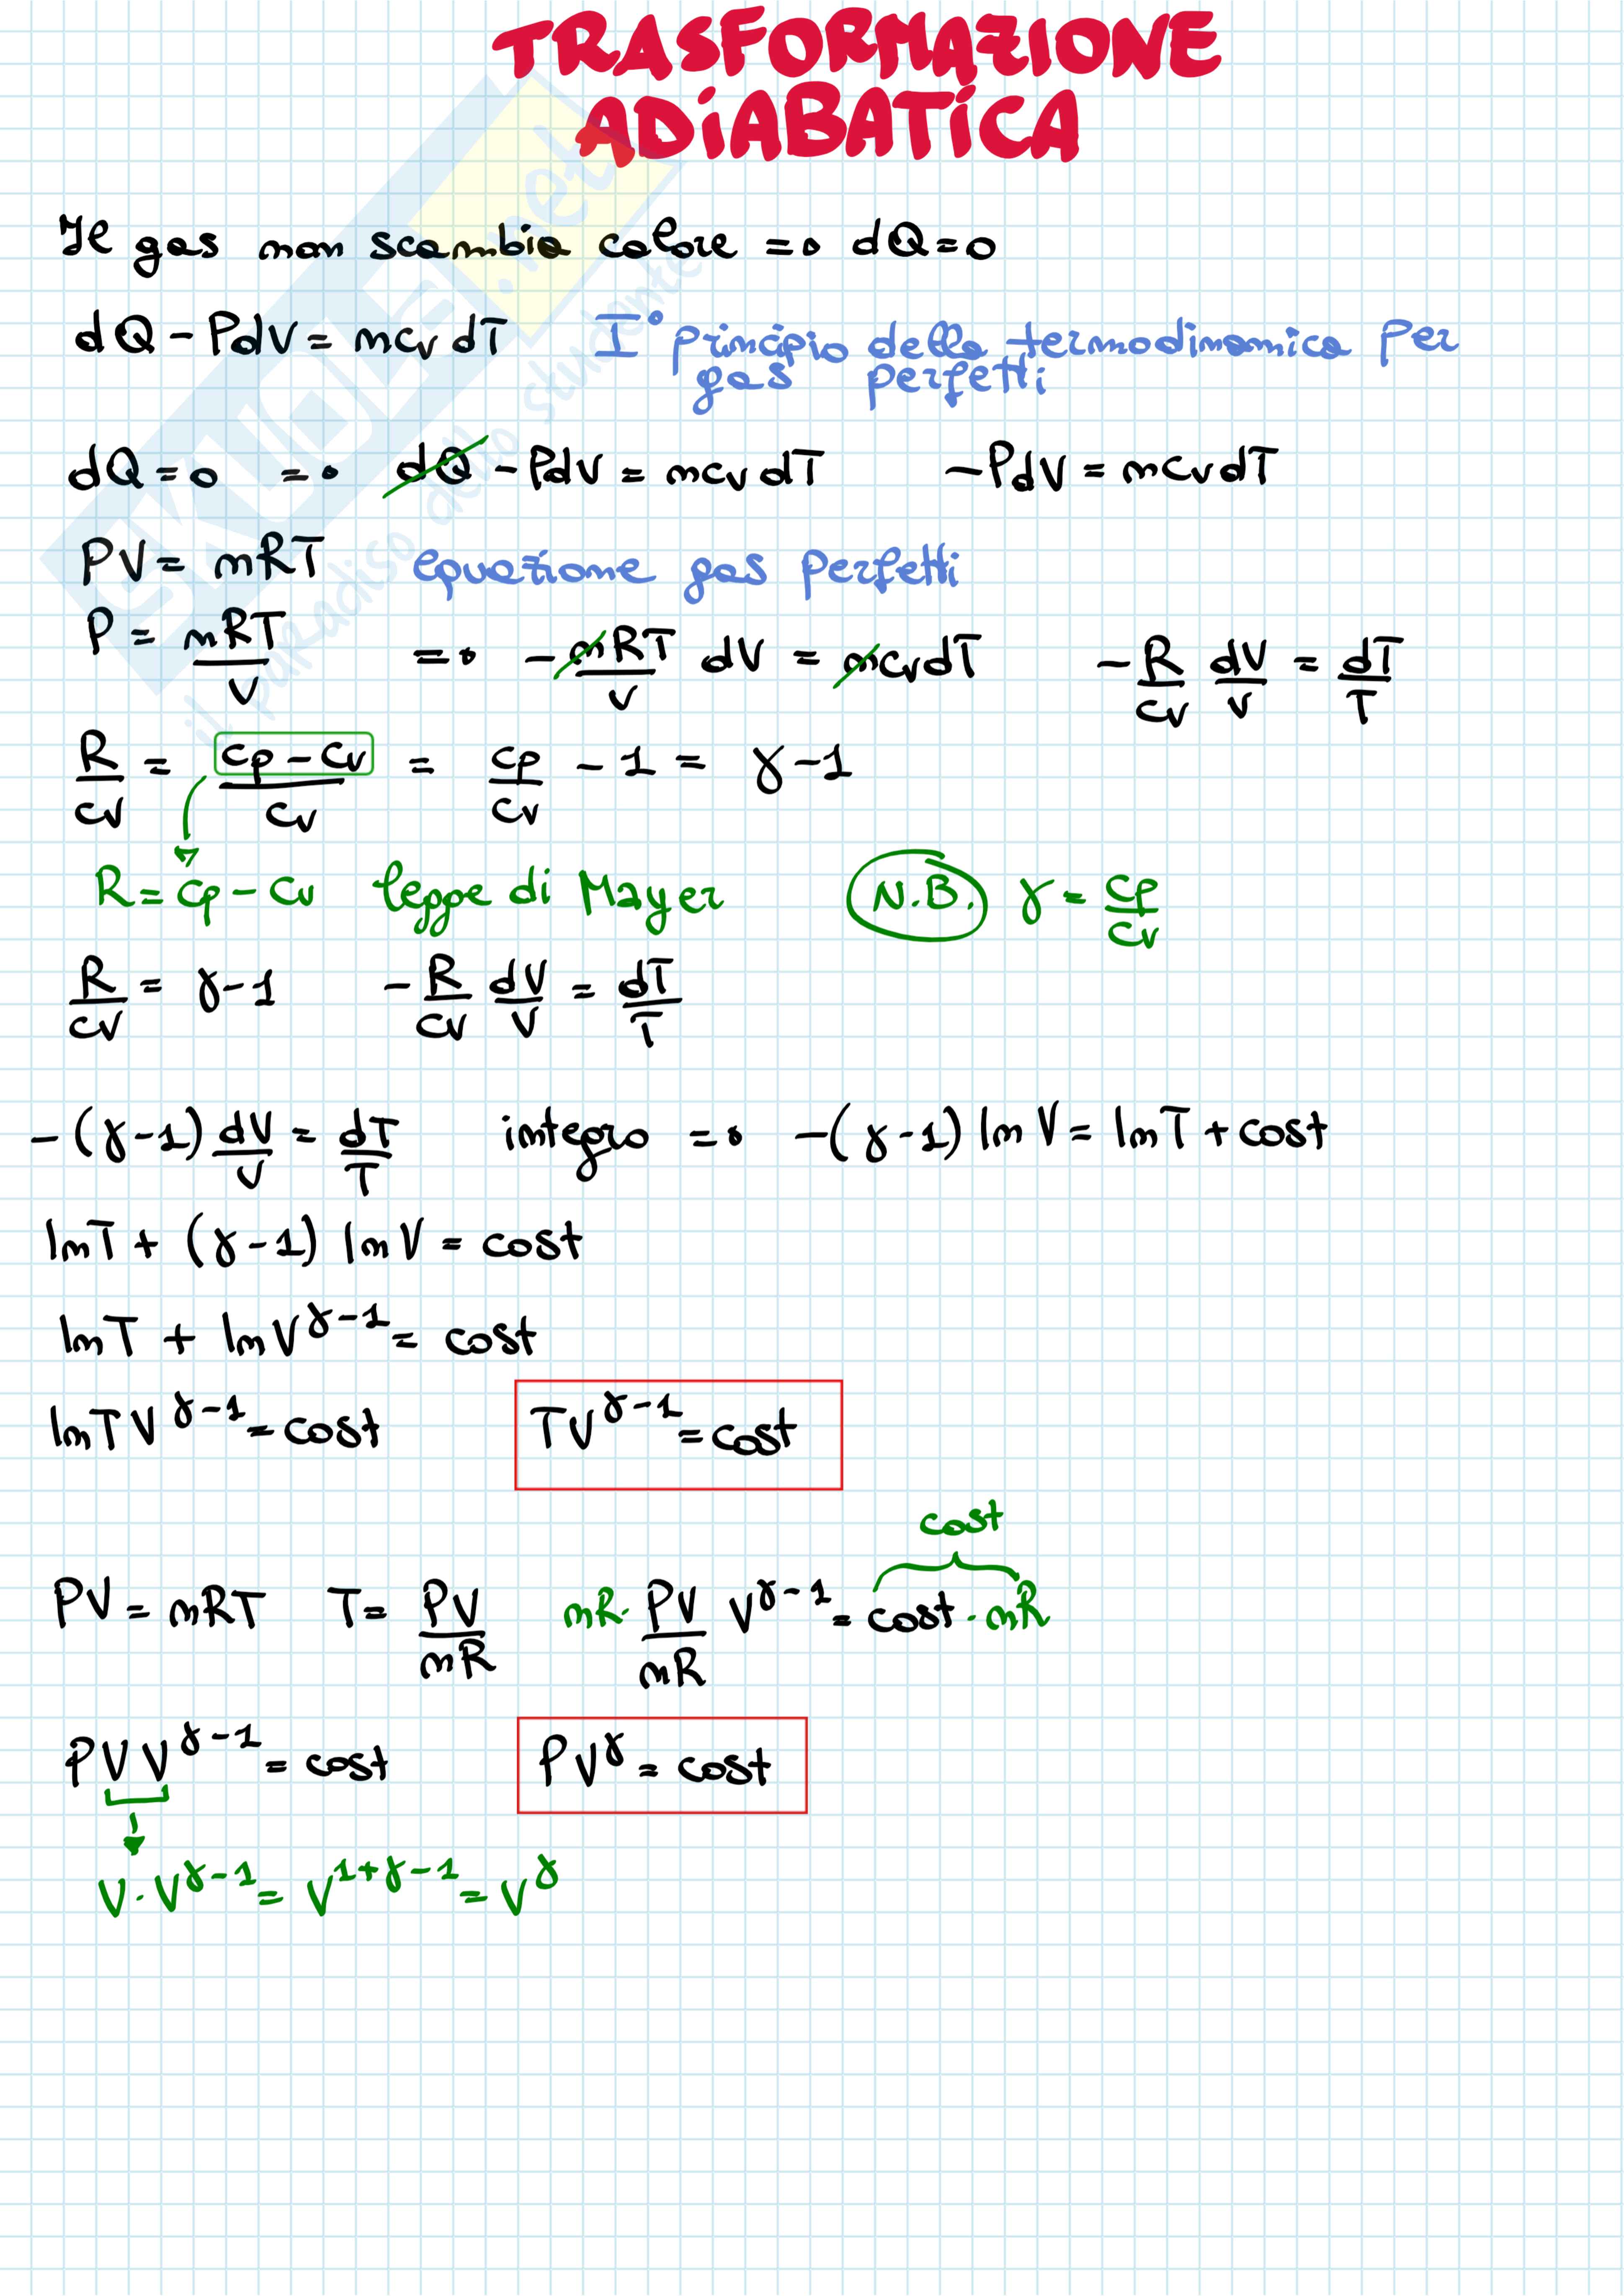 TRASFORMAZIONE
ADIABATICA
SKUOLA.net
il paradiso dello studente
Il gas non scambia calore => dQ=0
dQ - PdV = ncv dT I° principio della termodinamica per
gas perfetti
dQ=0 => dQ - PdV = ncv dT -PdV = ncv dT
PV = nRT equazione gas perfetti
P = nRT/V => -nRT/V dV = ncv dT -R/cv dV/V = dT/T
R/cv = (cp-cv)/cv = cp/cv - 1 = γ-1
R = cp - cv legge di Mayer N.B. γ = cp/cv
R/cv = γ-1 -R/cv dV/V = dT/T
-(γ-1) dV/V = dT/T integro => -(γ-1) ln V = ln T + cost
lnT + (γ-1) ln V = cost
lnT + lnV^γ-1 = cost
lnTV^γ-1 = cost TV^γ-1 = cost
cost
PV = nRT T = PV/nR nR· PV/nR V^γ-1 = cost · nR
PVV^γ-1 = cost PV^γ = cost
V·V^γ-1 = V^1+γ-1 = V^γ